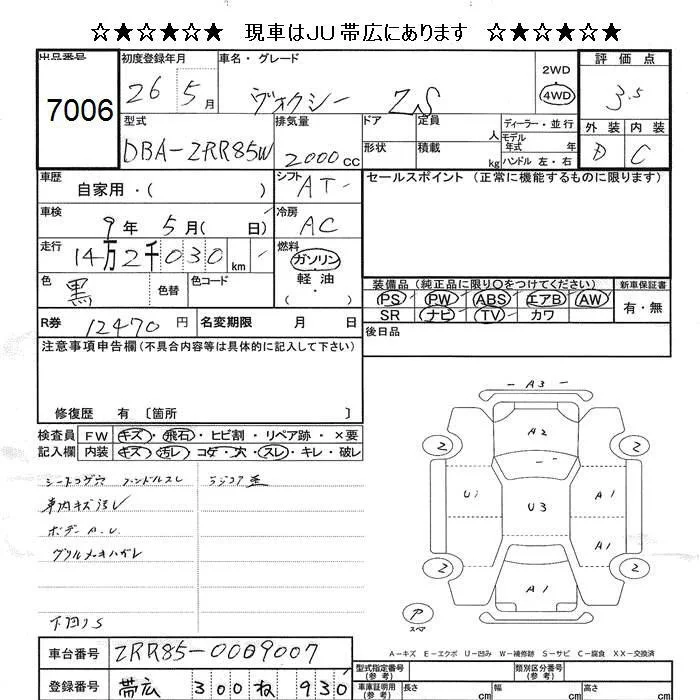 ☆★☆★☆★ 現車はJU帯広にあります ☆★☆★☆★
出品番号 7006
初度登録年月 26 5月
車名・グレード ヴォクシー ZS
2WD
4WD
評価点 3.5
外装 D 内装 C
型式 DBA-ZRR85W
排気量 2000cc
ドア
形状
定員 人
積載 kg
ディーラー・並行
モデル年式 年式
ハンドル 左・右
車歴 自家用・( )
シフト AT
セールスポイント (正常に機能するものに限ります)
車検 9年 5月( 日)
冷房 AC
走行 14万2千030km
燃料 ガソリン
軽油
( )
色 黒 色替 色コード
装備品 (純正品に限り○をつけてください)
PS PW ABS エアB AW
SR ナビ TV カワ
新車保証書
有・無
R券 12470円 名変期限 月 日
後日品
注意事項申告欄 (不具合内容等は具体的に記入して下さい)
修復歴 有 〔箇所 〕
検査員記入欄
FW キズ・飛石・ヒビ割・リペア跡・×要
内装 キズ・汚レ・コゲ・穴・スレ・キレ・破レ
シートコゲ穴 ハンドルスレ
車内キズ汚レ
ボデーA.U.
グリルメッキハガレ
下回りS
ラジコア歪
A3
A2
2 2
U1 U3 A1
A1
2 2
A1
P
スペア
A-キズ E-エクボ U-凹み W-補修跡 S-サビ C-腐食 XX-交換済
車台番号 ZRR85-0009007
登録番号 帯広 300 ね 930
型式指定番号 (参考)
類別区分番号 (参考)
車庫証明用 (参考) 長さ cm 幅 cm 高さ cm